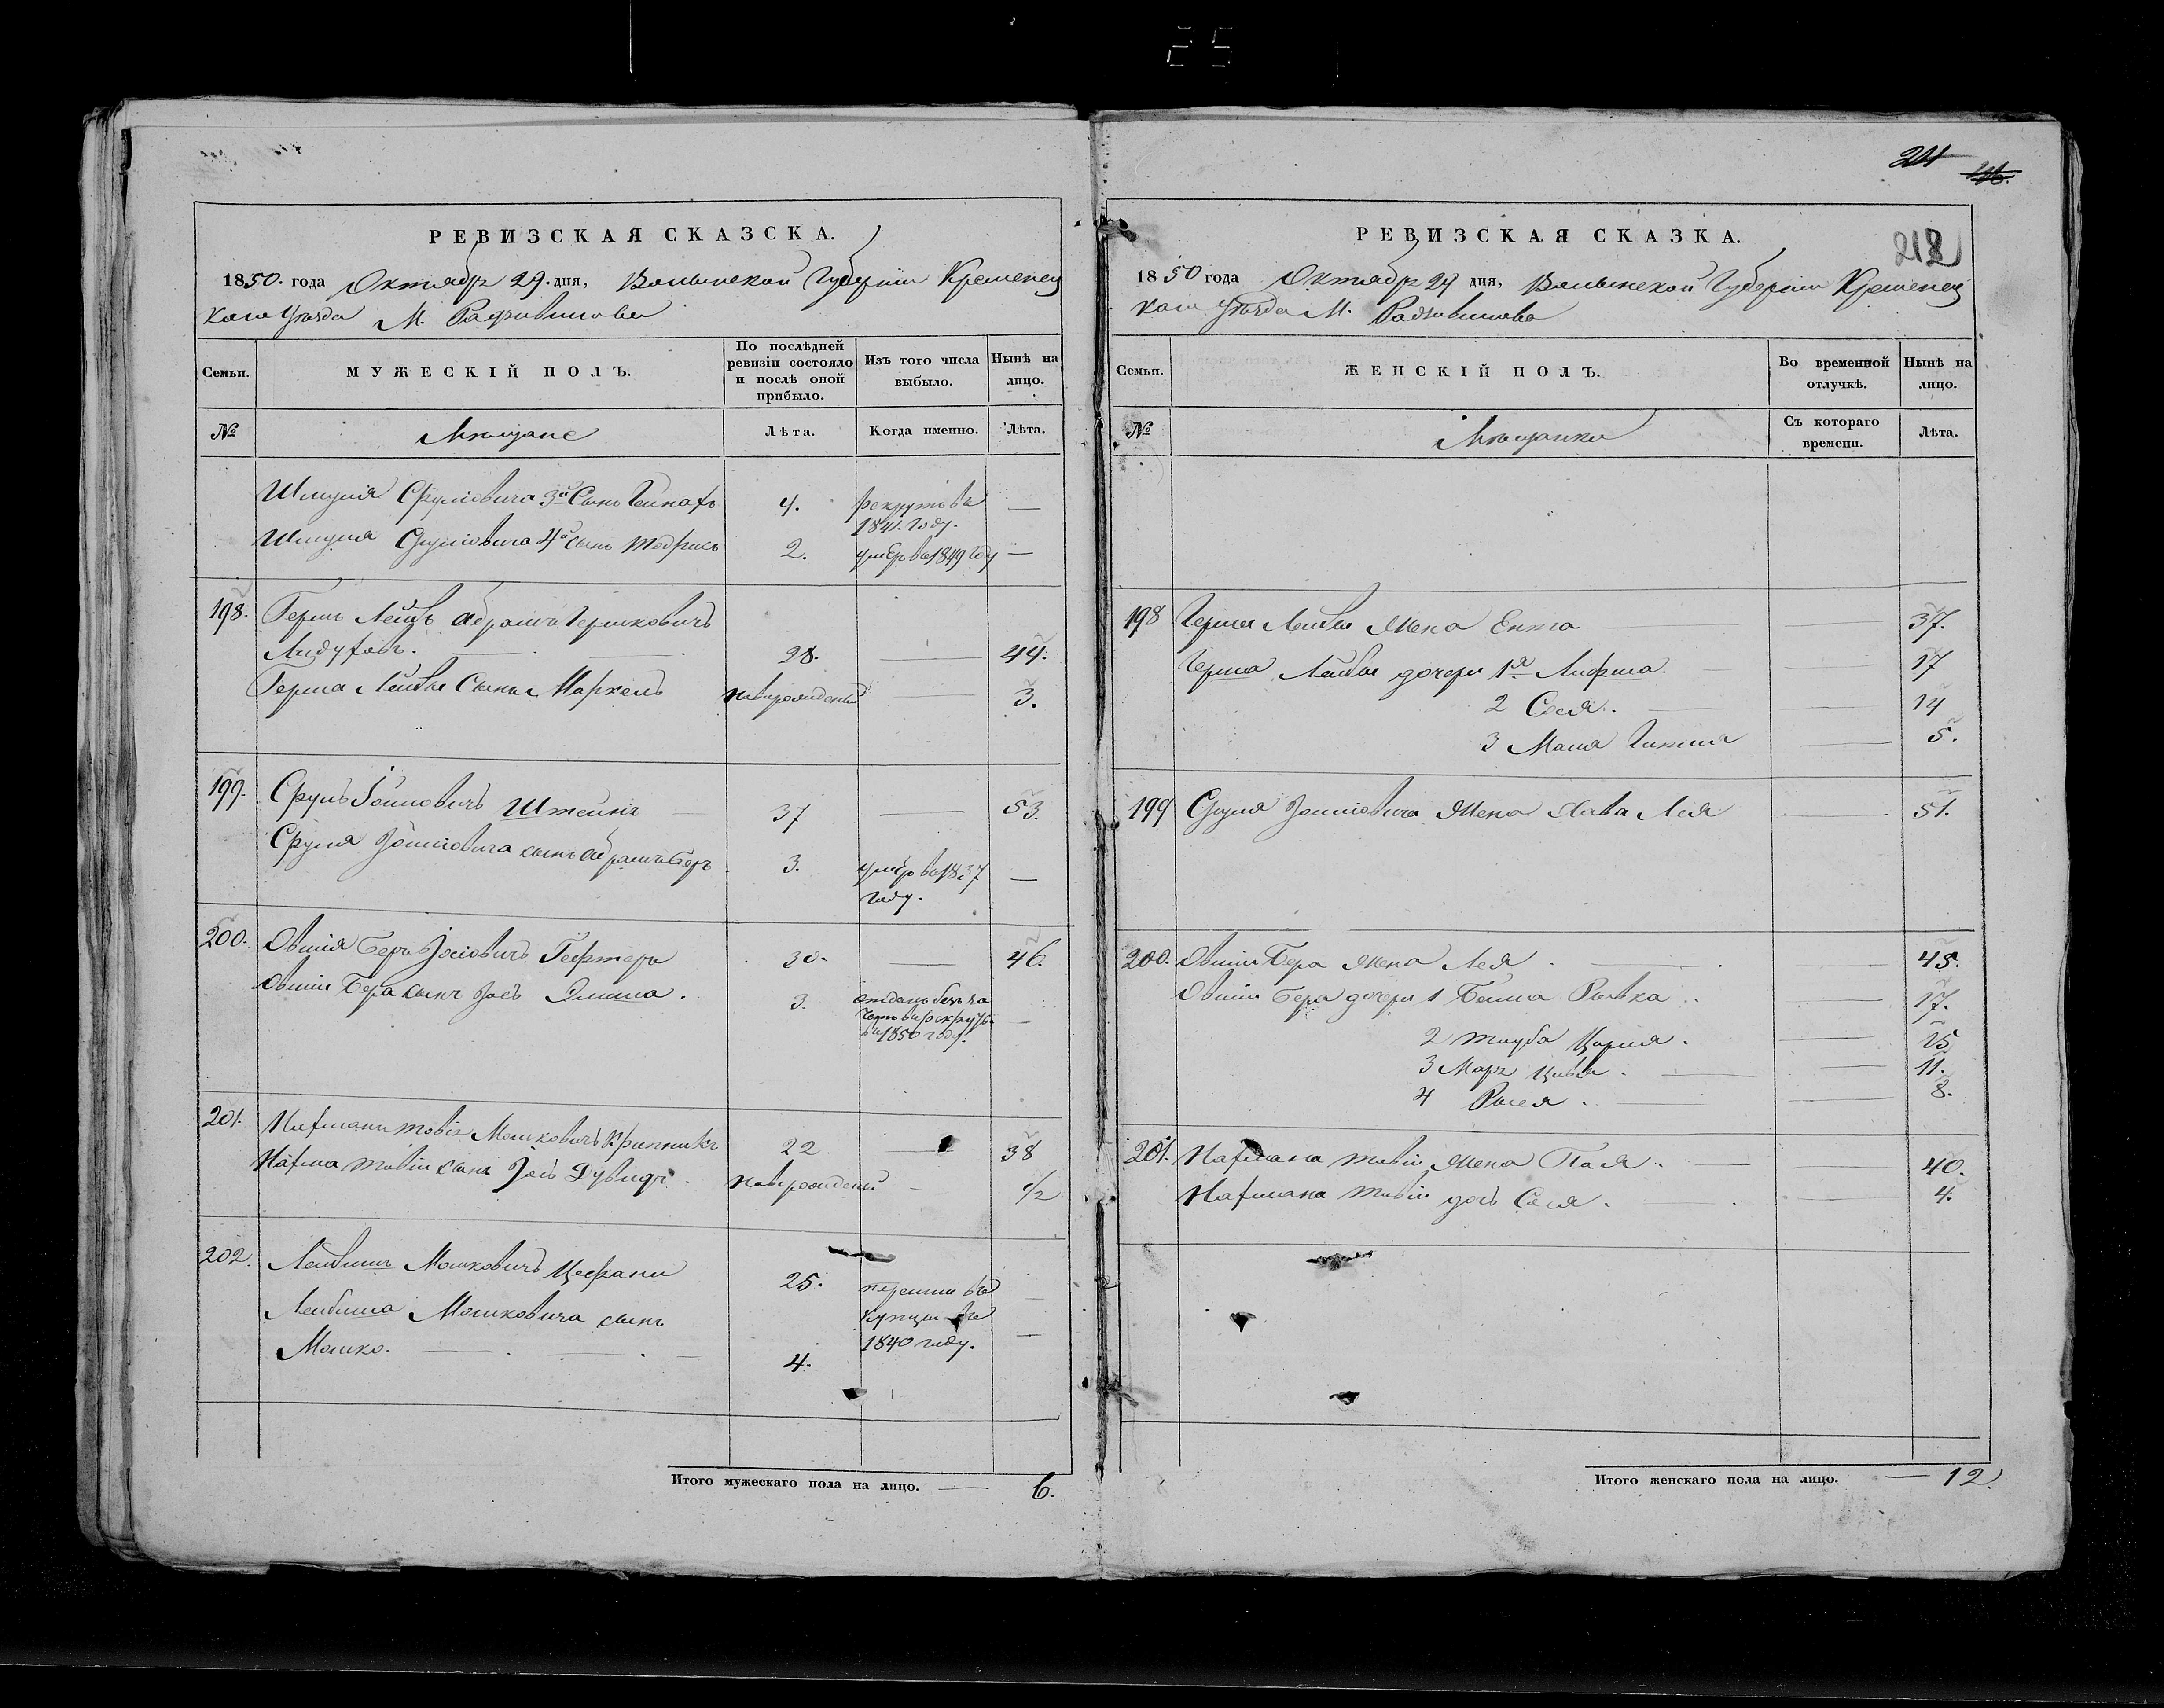 РЕВИЗСКАЯ СКАЗСКА.
1850. года Октября 29. дня, Волынской Губернии Кременец
каго уѣзда М. Радзивилова
Семьи.
МУЖЕСКІЙ ПОЛЪ.
По послѣдней ревизіи состояло и послѣ оной прибыло.
Изъ того числа выбыло.
Нынѣ на лицо.
№
Мѣщане
Лѣта.
Когда именно.
Лѣта.
Шмуля Сруловича 3й Сынъ
4.
рекрутъ въ
1841. году.
—
Шмуля Сруловича 4й сынъ Тодрисъ
2.
умеръ въ 1849 году
—
198. Герш Лейбъ Абрамъ Гершковичъ
28. — 44.
Герша Лейбы Сынъ Маркель
новорожденный — 3.
199. Срулъ Іоиновичъ Штейнъ
37 — 53.
Сруля Іоиновича сынъ Абрамъ Беръ
3.
умеръ въ 1837
году.
—
200. Овшія Беръ Іосіовичъ Гефтеръ
30. — 46.
Овшіи Бера сынъ Іосъ
3.
въ 1850 году.
—
201. Нахманъ Товія Мошковичъ
22 — 38
Нахмана Товіи сынъ Іосъ Дувидъ
новорожденый — 1/2
202. Лейбишъ Мошковичъ
25. —
Лейбиша Мошковича сынъ
Мошко.
4.
перешли въ
купцы въ
1840 году.
—
Итого мужескаго пола на лицо. — 6.
211
212
РЕВИЗСКАЯ СКАЗКА.
1850 года Октября 29 дня, Волынской Губернии Кременец
каго уѣзда М. Радзивилова
Семьи.
ЖЕНСКІЙ ПОЛЪ.
Во временной отлучкѣ.
Нынѣ на лицо.
№
Мѣщанки
Съ котораго времени.
Лѣта.
198 Герша Лейбы Жена Ента — 37.
Герша Лейбы дочери 1я Лифша — 17
2 Сося. — 14
3 Маша Гитля — 5.
199 Сруля Іоиновича Жена Хава Лея — 51.
200. Овшіи Бера Жена Лея — 45.
Овшіи Бера дочери 1 Бейла Рывка — 17.
2 Тауба — 15
3 Цивья — 11.
4 Рыся — 8.
201. Нахмана Товіи Жена Пася — 40.
Нахмана Товіи дочь Сося — 4.
Итого женскаго пола на лицо. — 12.